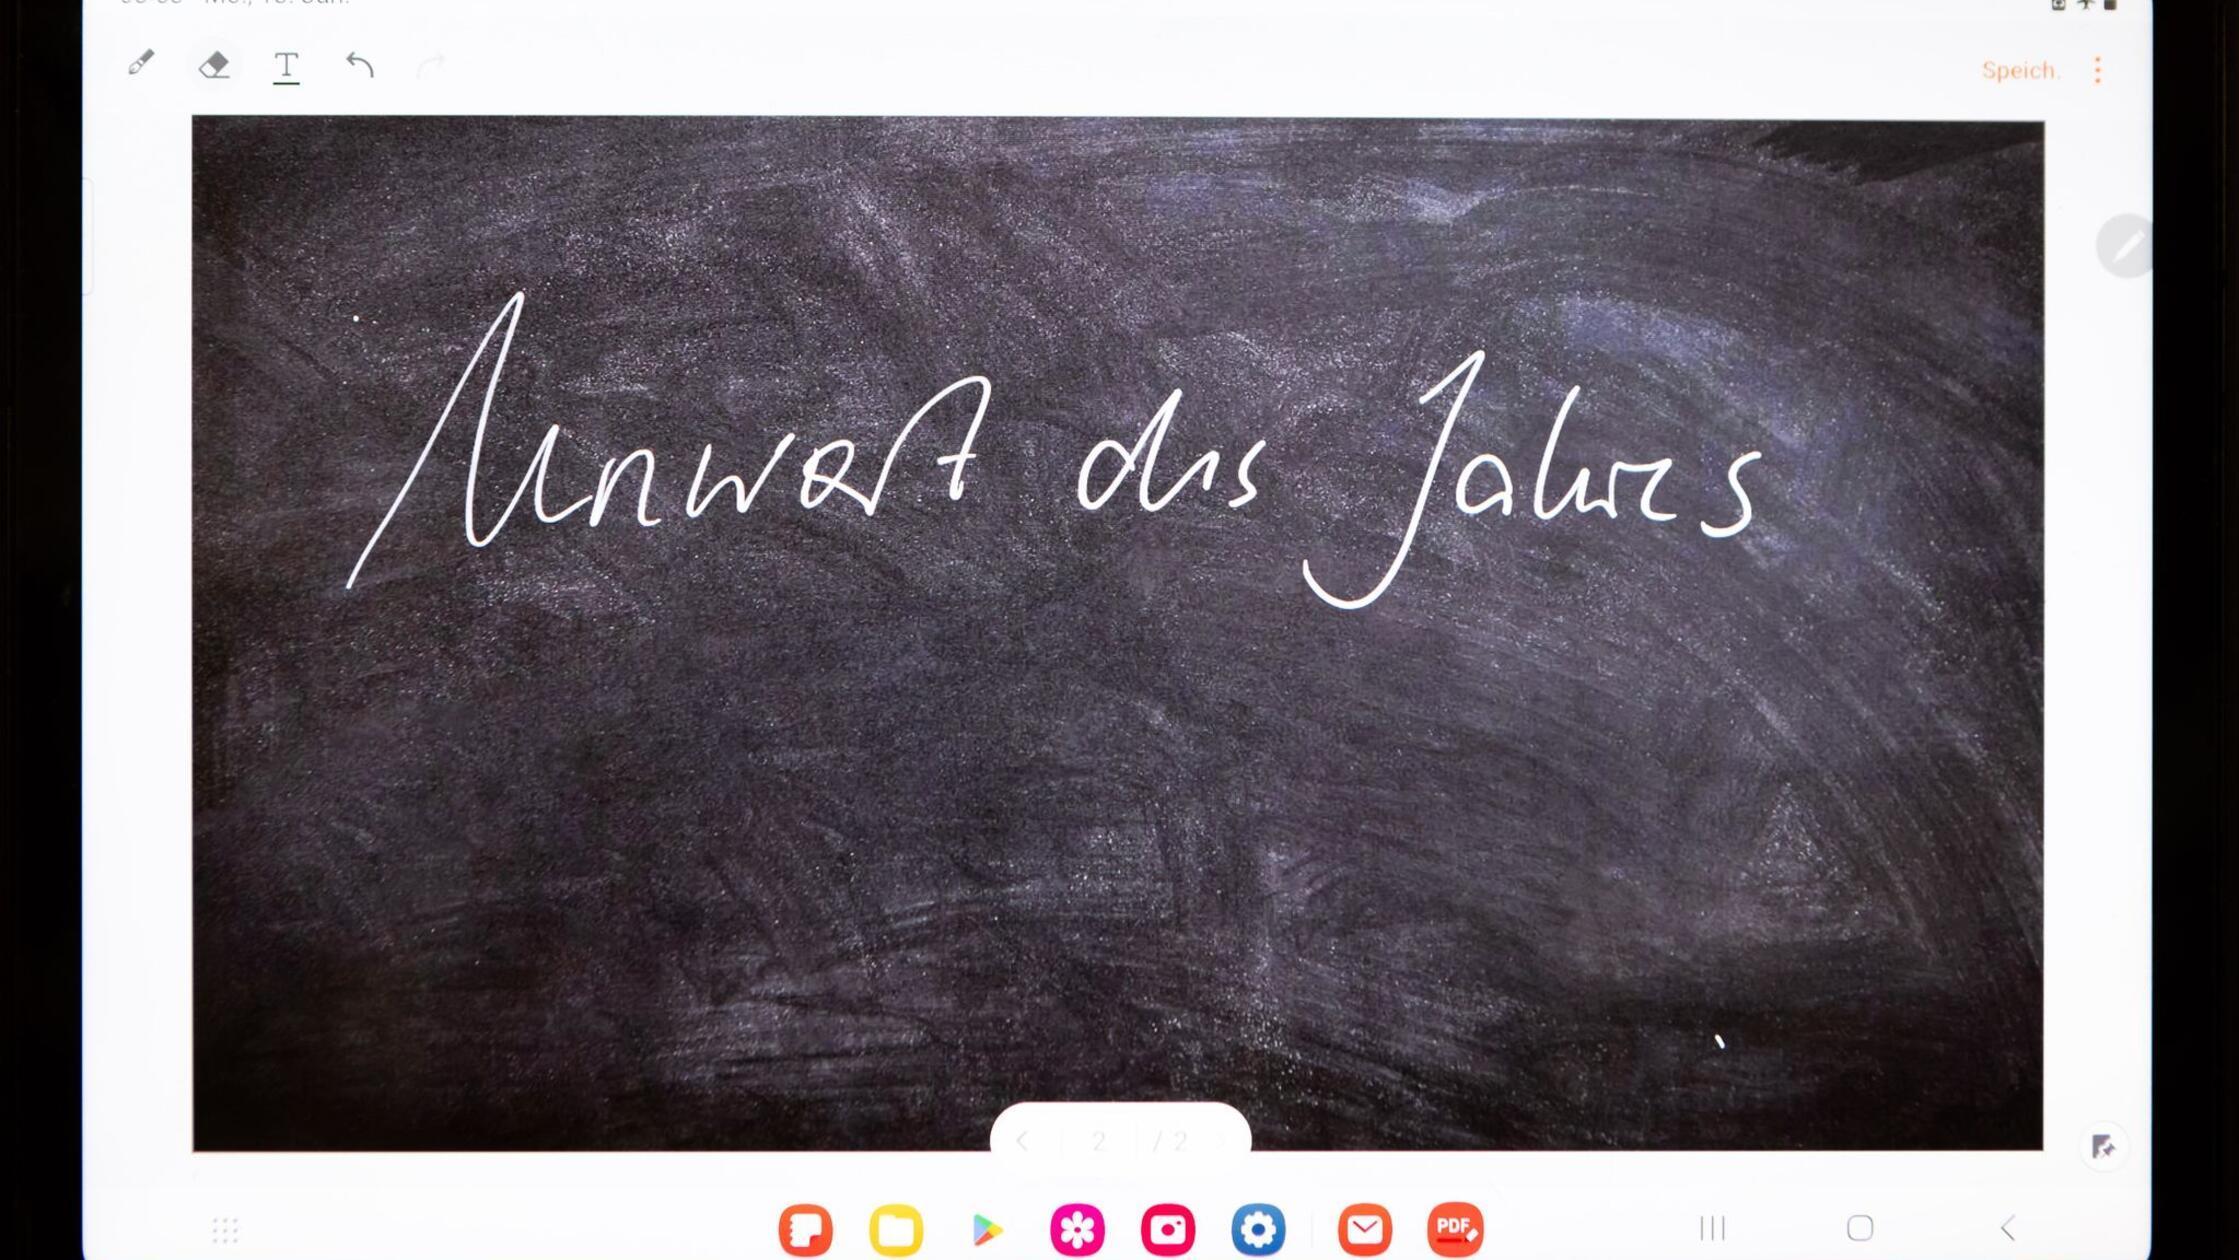 Speich.
Unwort des Jahres
2 / 2
PDF